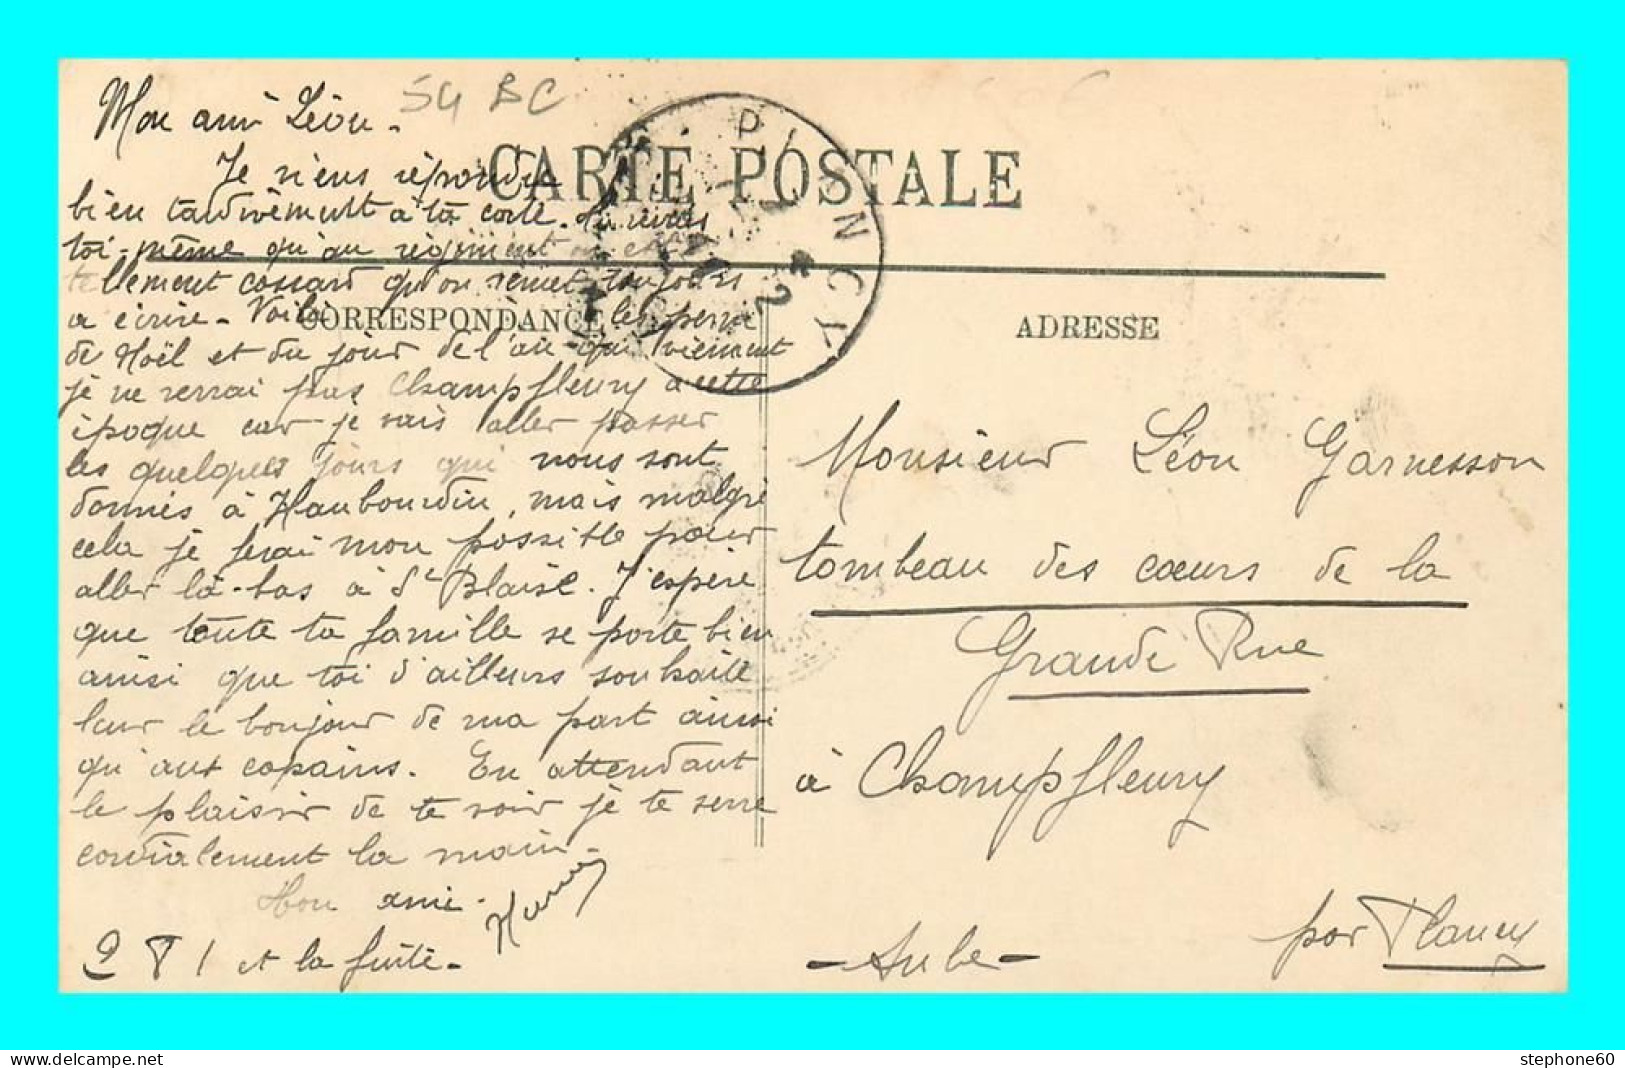 54 BC
PLANCY
2
CARTE POSTALE
CORRESPONDANCE
ADRESSE
Mon ami Léon.
Je viens répondre
bien tardivement à ta carte. Tu verras
toi-même qu'au régiment on est
tellement cossard qu'on remet toujours
a écrire. Voilà les perm
de Noël et du jour de l'an qui viennent
je ne verrai pas Champfleury à cette
époque car je vais aller passer
les quelques jours qui nous sont
donnés à Haubourdin, mais malgré
cela je ferai mon possible pour
aller là-bas à St Blaise. J'espère
que toute ta famille se porte bien
ainsi que toi d'ailleurs souhaite
leur le bonjour de ma part aussi
qu'aux copains. En attendant
le plaisir de te voir je te serre
cordialement la main.
Mon ami.
P T 1 et la fuite.
Monsieur Léon Garnesson
tombeau des cœurs de la
Grande Rue
à Champfleury
par Plancy
- Aube -
www.delcampe.net
stephone60